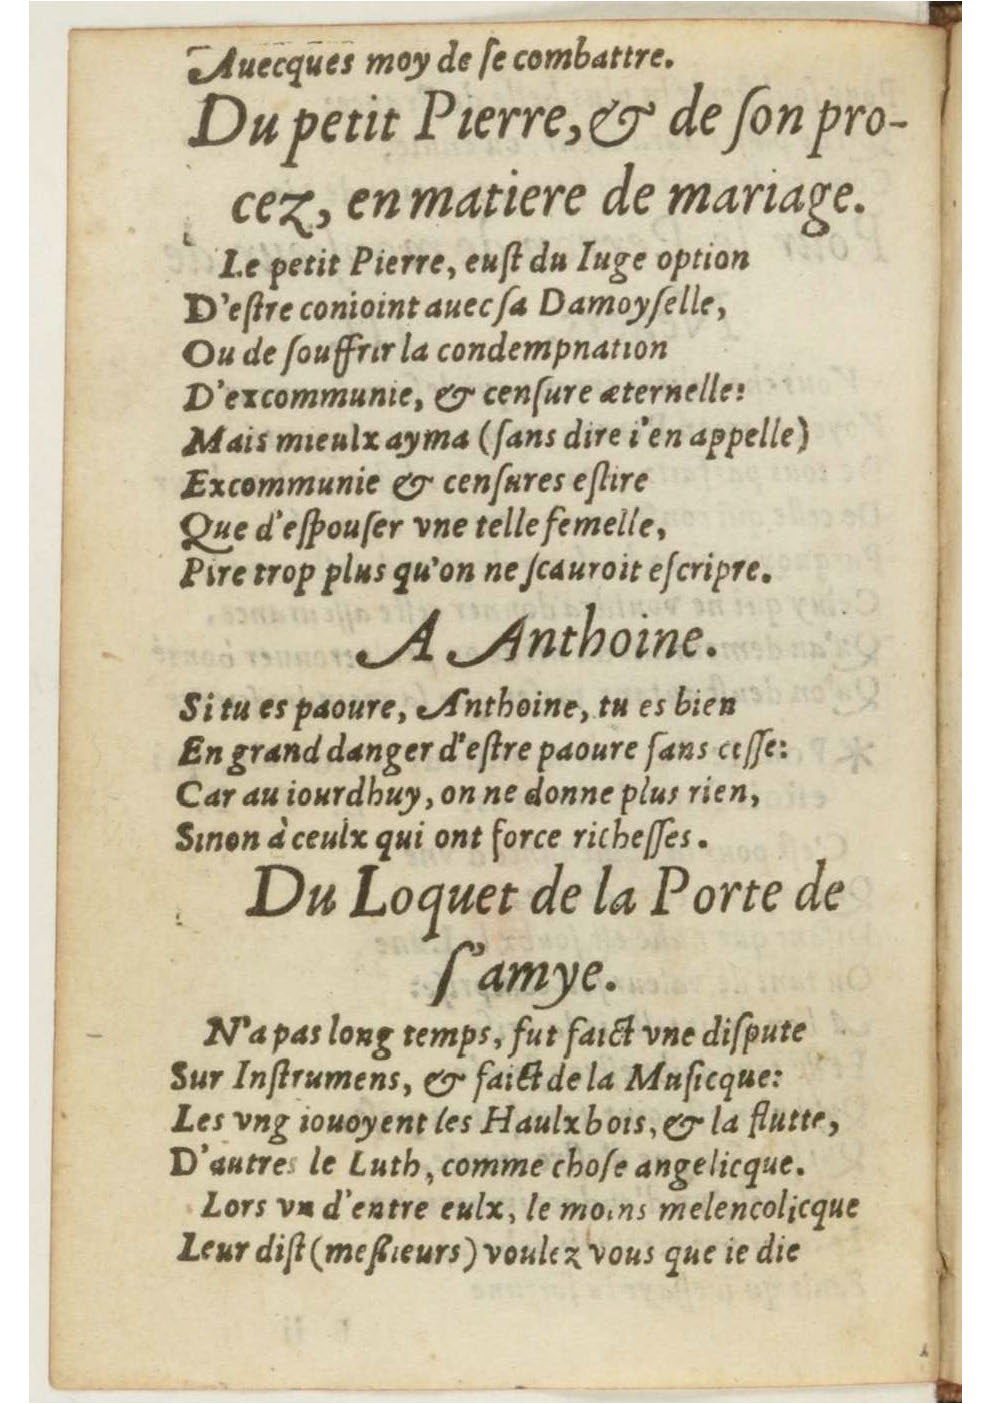 Auecques moy de ſe combattre.
Du petit Pierre, & de ſon pro-
cez, en matiere de mariage.
Le petit Pierre, euſt du Iuge option
D'eſtre conioint auec ſa Damoyſelle,
Ou de ſouffrir la condempnation
D'excommunie, & cenſure æternelle:
Mais mieulx ayma (ſans dire i'en appelle)
Excommunie & cenſures eſlire
Que d'eſpouſer vne telle femelle,
Pire trop plus qu'on ne ſcauroit eſcripre.
A Anthoine.
Si tu es paoure, Anthoine, tu es bien
En grand danger d'eſtre paoure ſans ceſſe:
Car au iourdhuy, on ne donne plus rien,
Sinon à ceulx qui ont force richeſſes.
Du Loquet de la Porte de
ſ'amye.
N'a pas long temps, fut faict vne diſpute
Sur Inſtrumens, & faict de la Muſicque:
Les vng iouoyent les Haulxbois, & la flutte,
D'autres le Luth, comme choſe angelicque.
Lors vn d'entre eulx, le moins melencolicque
Leur diſt (meſſieurs) voulez vous que ie die